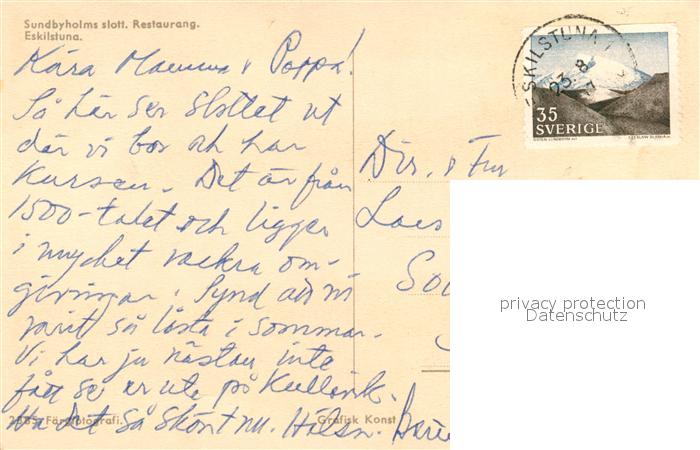 Sundbyholms slott. Restaurang.
Eskilstuna.
Kära Mamma & Pappa!
Så här ser slottet ut
där vi bor och har
kursen. Det är från
1500-talet och ligger
i mycket vackra om-
givningar. Synd att ni
varit så låsta i sommar.
Vi har ju nästan inte
fått se er ute på Kullavik.
Ha det så skönt nu. Hälsn.
2885. Färgfotografi.
Grafisk Konst
ESKILSTUNA
23. 8
35
SVERIGE
Dir. & Fru
privacy protection
Datenschutz